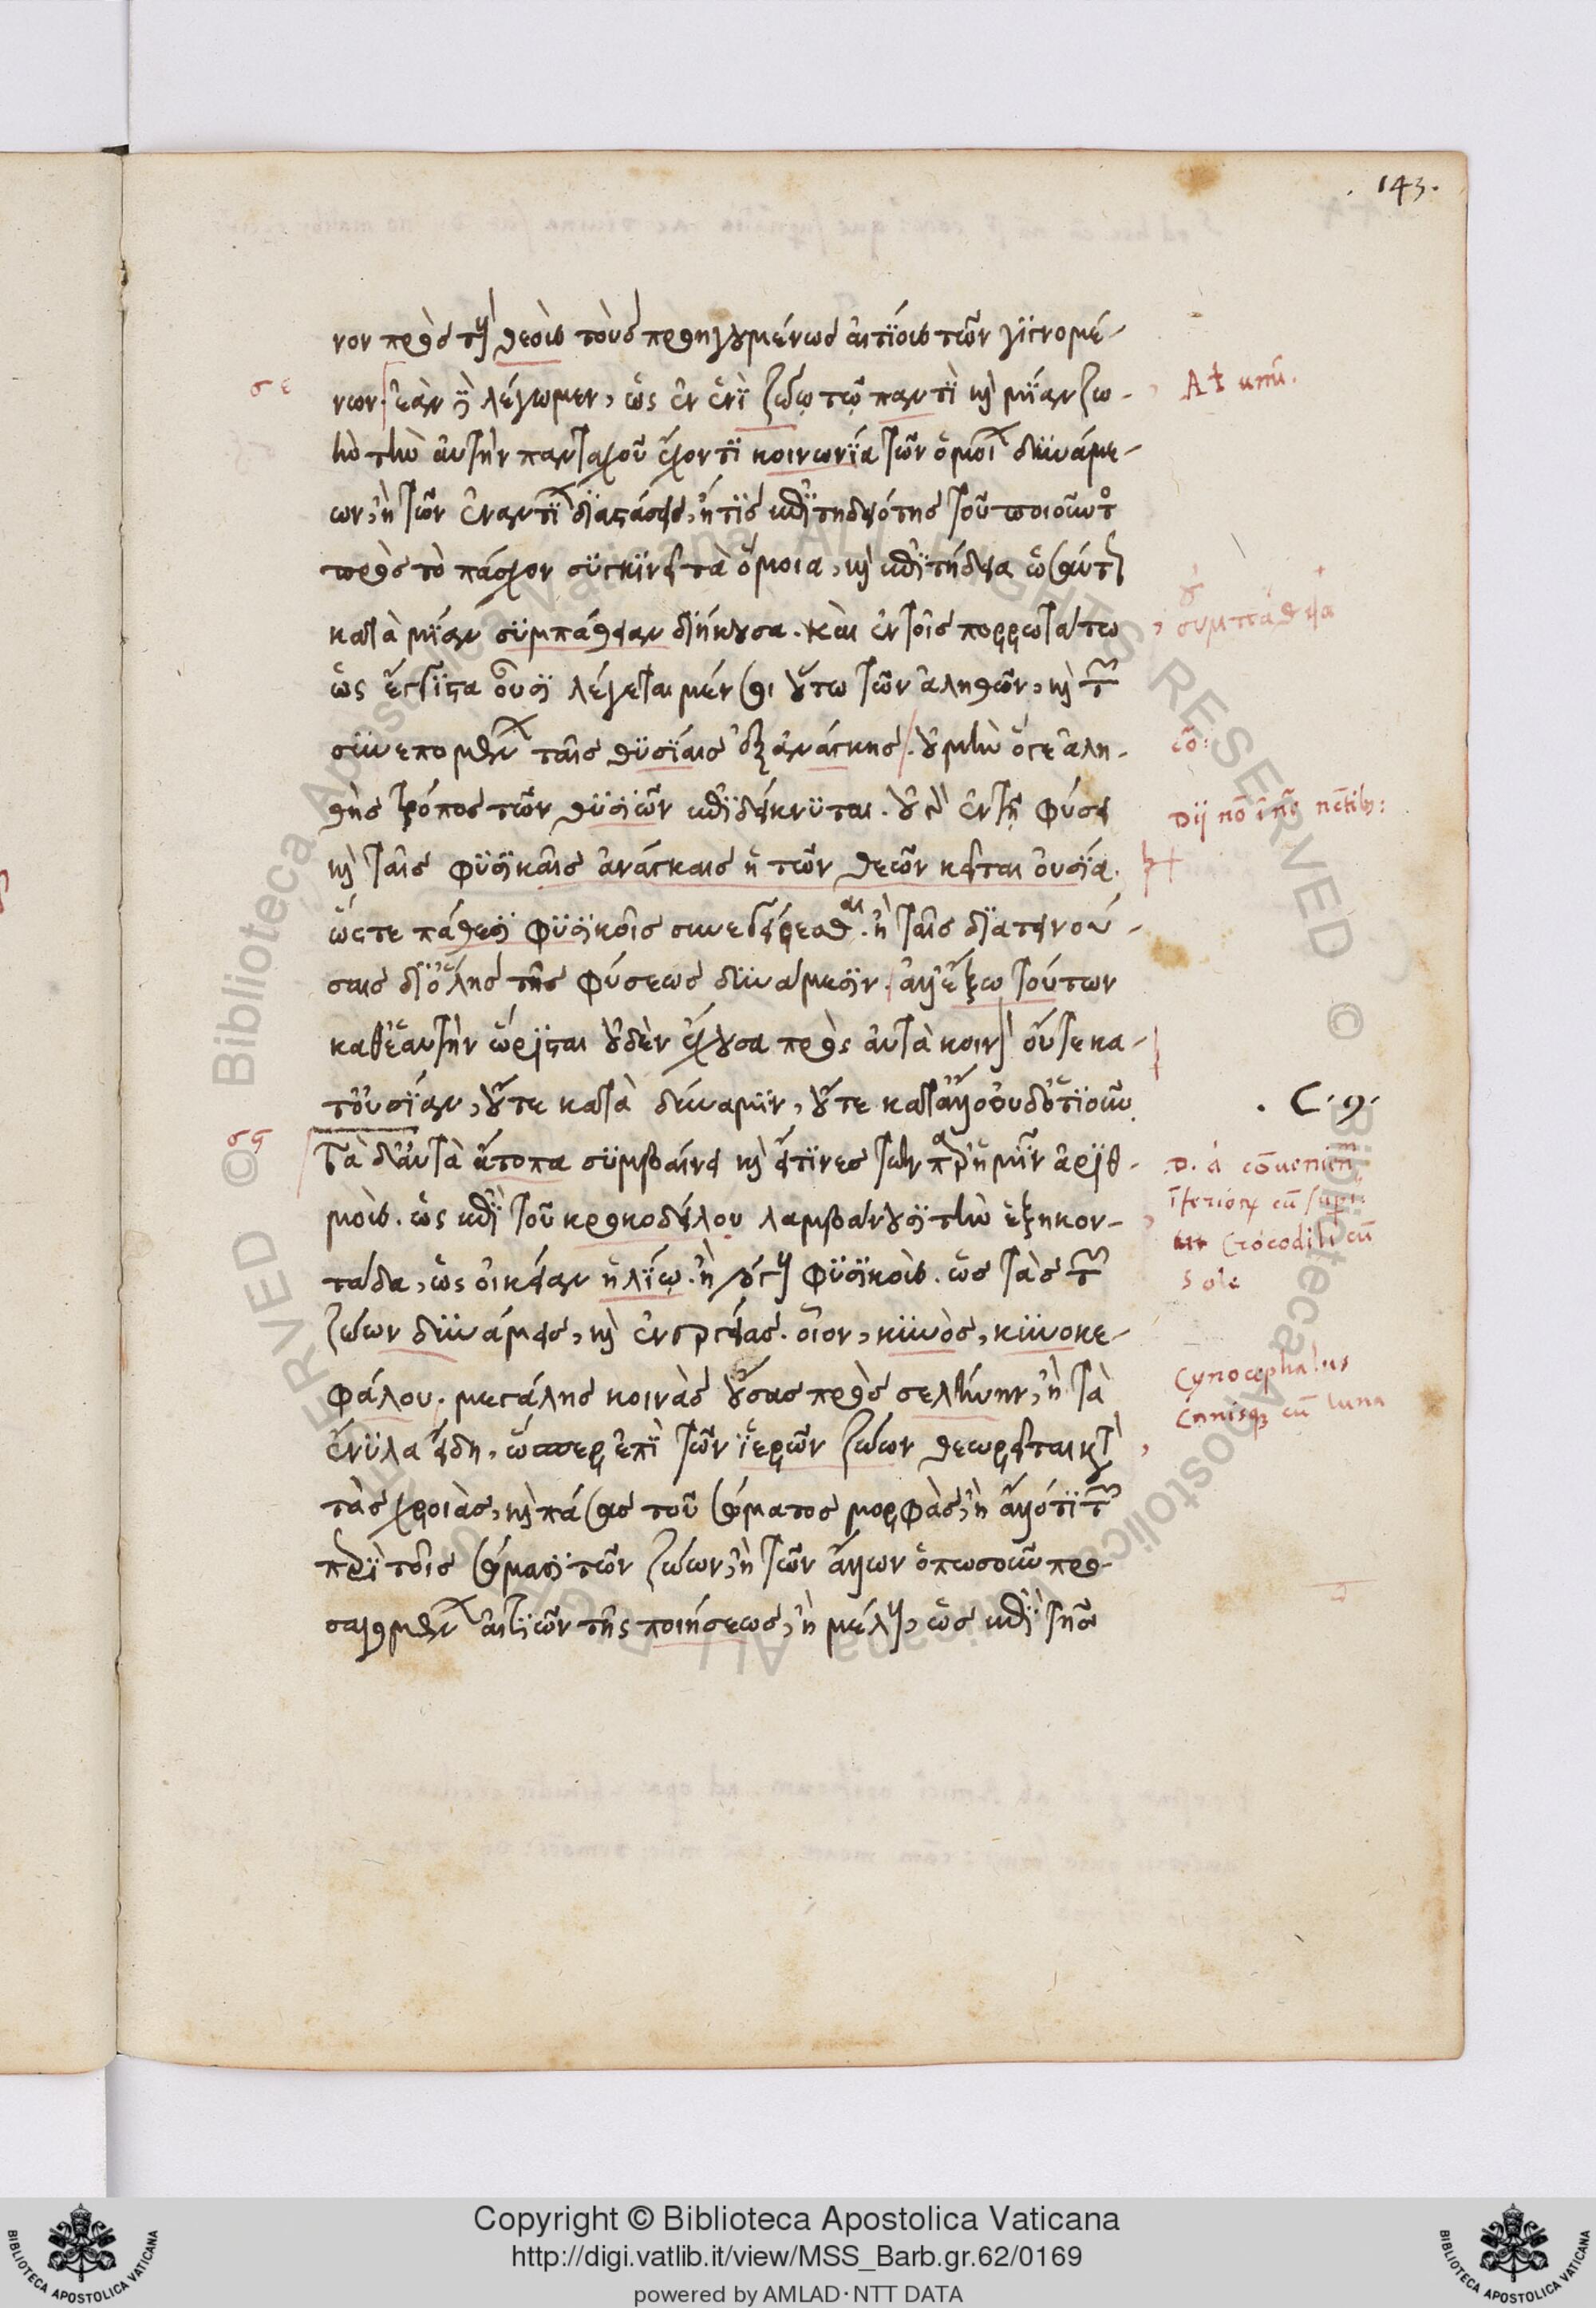 . 143.
νον πρὸς τοὺς θεοὺς τοὺς προηγουμένως αἰτίους τῶν γιγνομέ-
σε
νων. ἐὰν δὲ λέγωμεν, ὡς ἐν ἑνὶ ζώῳ τῷ παντὶ καὶ μίαν ζω-
ὴν τὴν αὐτὴν πανταχοῦ ἔχοντι κοινωνία τῶν ὁμοίων δυνάμε-
ων, ἢ τῶν ἐναντίων διάστασις, ἤ τις ἐπιτηδειότης τοῦ ποιοῦντος
πρὸς τὸ πάσχον συγκινεῖ τὰ ὅμοια, καὶ ἐπιτήδεια ὡσαύτως
κατὰ μίαν συμπάθειαν διήκουσα. καὶ ἐν τοῖς πορρωτάτω
ὡς ἔγγιστα οὖσι λέγεται μέν τι οὕτω τῶν ἀληθῶν, καὶ τῶν
συνεπομένων ταῖς θυσίαις ἐξ ἀνάγκης. οὐ μὴν ὅγε ἀλη-
θὴς τρόπος τῶν θυσιῶν ἐπιδείκνυται. οὐ γὰρ ἐν τῇ φύσει
καὶ ταῖς φυσικαῖς ἀνάγκαις ἡ τῶν θεῶν κεῖται οὐσία.
ὥστε πάθεσι φυσικοῖς συνεγείρεσθαι. ἢ ταῖς διατεινού-
σαις δι' ὅλης τῆς φύσεως δυνάμεσιν. ἀλλ' ἔξω τούτων
καθ' ἑαυτὴν ὥρισται οὐδὲν ἔχουσα πρὸς αὐτὰ κοινὸν οὔτε κα-
τ' οὐσίαν, οὔτε κατὰ δύναμιν, οὔτε κατ' ἄλλο οὐδ' ὁτιοῦν.
σϛ
Τὰ δ' αὐτὰ ἄτοπα συμβαίνει καὶ εἴ τινες τῶν παρ' ἡμῖν ἀριθ-
μοὺς. ὡς ἐπὶ τοῦ κροκοδείλου λαμβάνουσι τὴν ἑξηκον-
τάδα, ὡς οἰκείαν ἡλίῳ. ἢ λόγους φυσικοὺς. ὡς τὰς τῶν
ζώων δυνάμεις, καὶ ἐνεργείας. οἷον, κυνὸς, κυνοκε-
φάλου. μυγάλης κοινὰς οὔσας πρὸς σελήνην, ἢ τὰ
ἔνυλα εἴδη, ὥσπερ ἐπὶ τῶν ἱερῶν ζώων θεωρεῖται κατὰ
τὰς χροιὰς, καὶ πάσας τοῦ σώματος μορφὰς, ἢ ἄλλό τι τῶν
περὶ τοῖς σώμασι τῶν ζώων, ἢ τῶν ἄλλων ὁπωσοῦν προ-
σαγομένων αἰτιῶν τῆς ποιήσεως, ἢ μέλος, ὡς ἐπὶ τῆς
συμπάθεια
Dij nō ī
C. 9.
Crocodili cū
Sole
Cynocephalus
Canisq cū luna
Copyright © Biblioteca Apostolica Vaticana
http://digi.vatlib.it/view/MSS_Barb.gr.62/0169
powered by AMLAD·NTT DATA
BIBLIOTECA APOSTOLICA VATICANA
BIBLIOTECA APOSTOLICA VATICANA